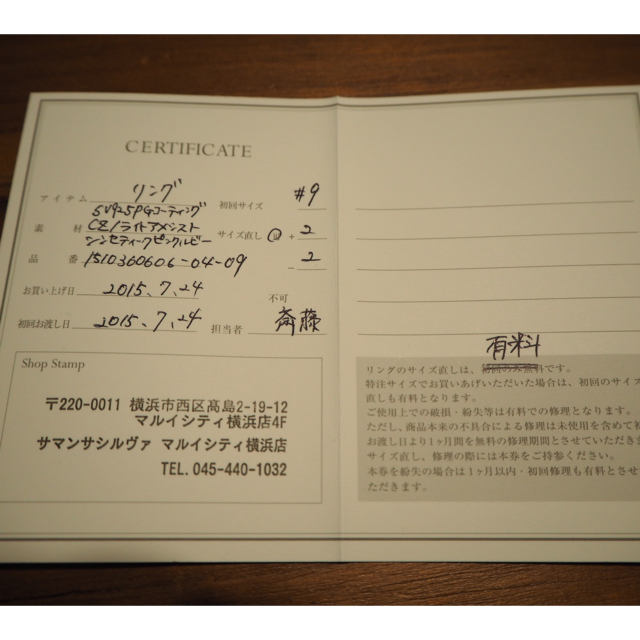 CERTIFICATE
アイテム リング 初回サイズ #9
SV925PGコーティング
素 材 CZ/ライトアメシスト サイズ直し 可 +2
シンセティックピンクルビー
品 番 1510360606-04-09 -2
お買い上げ日 2015.7.24 不可
初回お渡し日 2015.7.24 担当者 斎藤
Shop Stamp
〒220-0011 横浜市西区高島2-19-12
マルイシティ横浜店4F
サマンサシルヴァ マルイシティ横浜店
TEL. 045-440-1032
有料
リングのサイズ直しは、初回のみ無料です。
特注サイズでお買いあげいただいた場合は、初回のサイズ
直しも有料となります。
ご使用上での破損・紛失等は有料での修理となります。
ただし、商品本来の不具合による修理は未使用を含めて初
お渡し日より1ヶ月間を無料の修理期間とさせていただきま
サイズ直し、修理の際には本券をご持参ください。
本券を紛失の場合は1ヶ月以内・初回修理も有料とさせ
ただきます。